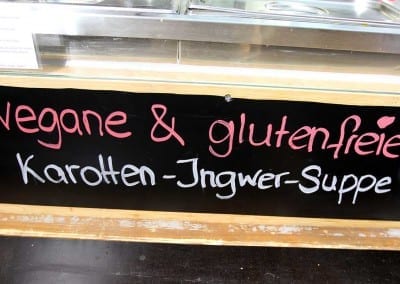 vegane & glutenfreie
Karotten-Ingwer-Suppe